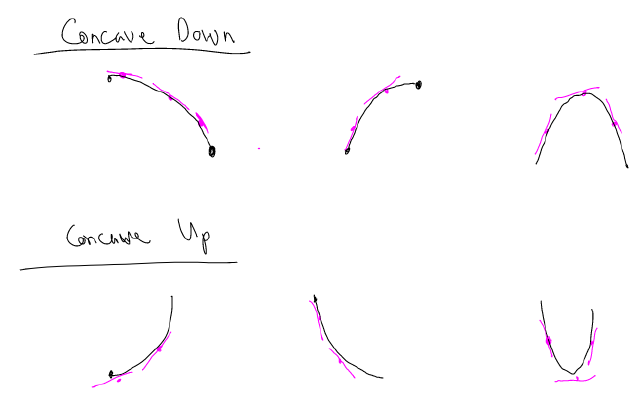 Concave Down
Concave Up